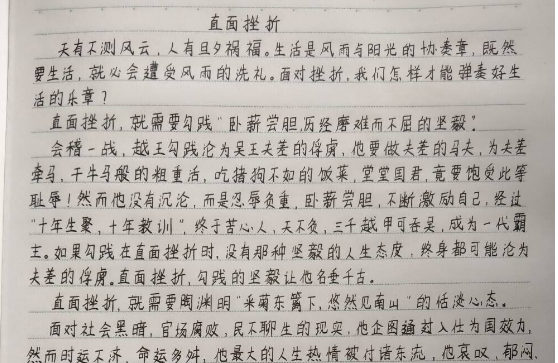 直面挫折
天有不测风云，人有旦夕祸福。生活是风雨与阳光的协奏章，既然
要生活，就必会遭受风雨的洗礼。面对挫折，我们怎样才能弹奏好生
活的乐章？
直面挫折，就需要勾践“卧薪尝胆，历经磨难而不屈的坚毅”。
会稽一战，越王勾践沦为吴王夫差的俘虏，他要做夫差的马夫，为夫差
牵马，干牛马般的粗重活，吃猪狗不如的饭菜，堂堂国君，竟要饱受此等
耻辱！然而他没有沉沦，而是忍辱负重，卧薪尝胆，不断激励自己，经过
“十年生聚，十年教训”，终于苦心人，天不负，三千越甲可吞吴，成为一代霸
主。如果勾践在直面挫折时，没有那种坚毅的人生态度，终身都可能沦为
夫差的俘虏。直面挫折，勾践的坚毅让他名垂千古。
直面挫折，就需要陶渊明“采菊东篱下，悠然见南山”的恬淡心态。
面对社会黑暗，官场腐败，民不聊生的现实，他企图通过入仕为国效力，
然而时运不济，命运多舛，他最大的人生热情被付诸东流，他哀叹，郁闷